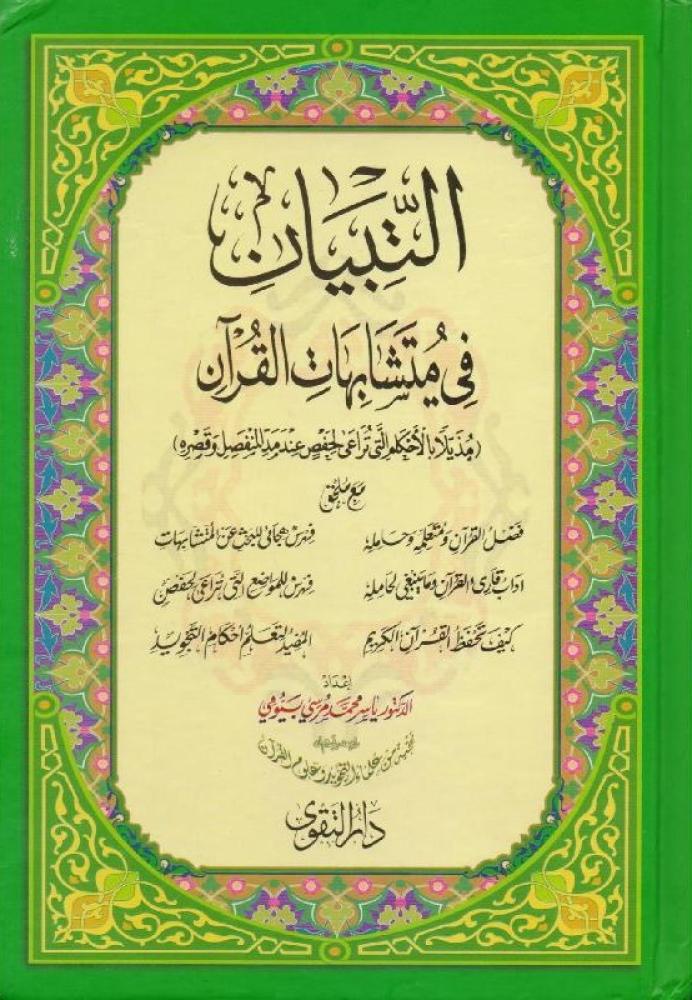 التِّبْيَانُ
فِي مُتَشَابِهَاتِ القُرْآنِ
(مُذَيَّلًا بِالأَحْكَامِ الَّتِي تُرَاعَى لِحَفْصٍ عِنْدَ مَدِّ المُنْفَصِلِ وَقَصْرِهِ)
مَعَ مُلْحَق
فَضْلُ القُرْآنِ وَمُتَعَلِّمِهِ وَحَامِلِهِ فهرس هجائي للبحث عن المتشابهات
آداب قارئ القرآن وما ينبغي لحامله فهرس للمواضع التي تراعى لحفص
كَيْفَ تَحْفَظُ القُرْآنَ الكَرِيمَ المفيد لتعلم أحكام التجويد
إعداد
الدكتور ياسر محمد مرسي بيومي
نخبة من علماء التجويد وعلوم القرآن
دار التقوى